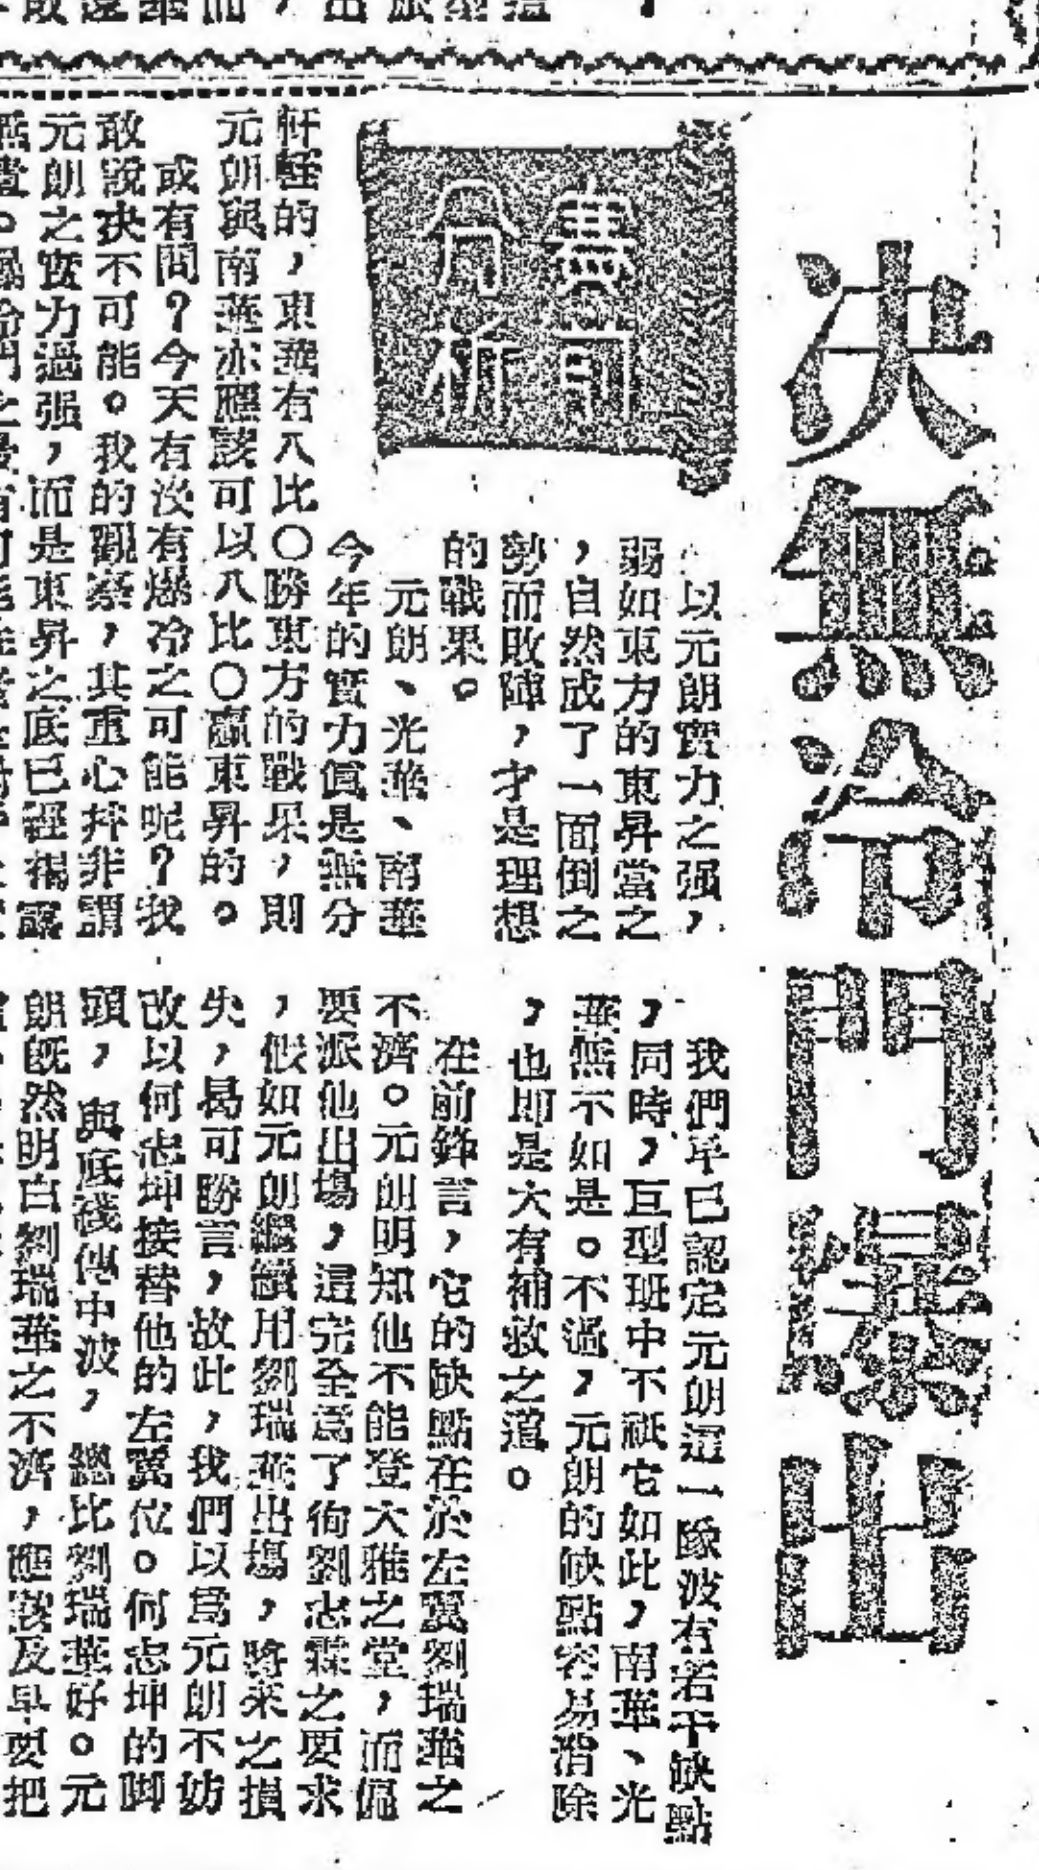 決無冷門爆出
賽前
分析
以元朗實力之强，
弱如東方的東昇當之
，自然成了一面倒之
勢而敗陣，才是理想
的戰果。
元朗、光華、南華
今年的實力眞是無分
軒輊的，東華有八比〇勝東方的戰果，則
元朗與南華亦應該可以八比〇贏東昇的。
或有問？今天有沒有爆冷之可能呢？我
敢說決不可能。我的觀察，其重心幷非謂
元朗之實力過强，而是東昇之底已經揭露
我們早已認定元朗這一隊波有若干缺點
，同時，巨型班中不祇它如此，南華、光
華無不如是。不過，元朗的缺點容易消除
，也即是大有補救之道。
在前鋒言，它的缺點在於左翼劉瑞華之
不濟。元朗明知他不能登大雅之堂，而偏
要派他出場，這完全爲了徇劉志霖之要求
，假如元朗繼續用劉瑞華出場，將來之損
失，曷可勝言，故此，我們以爲元朗不妨
改以何志坤接替他的左翼位。何志坤的脚
頭，與底綫傳中波，總比劉瑞華好。元
朗旣然明白劉瑞華之不濟，應該及早要把